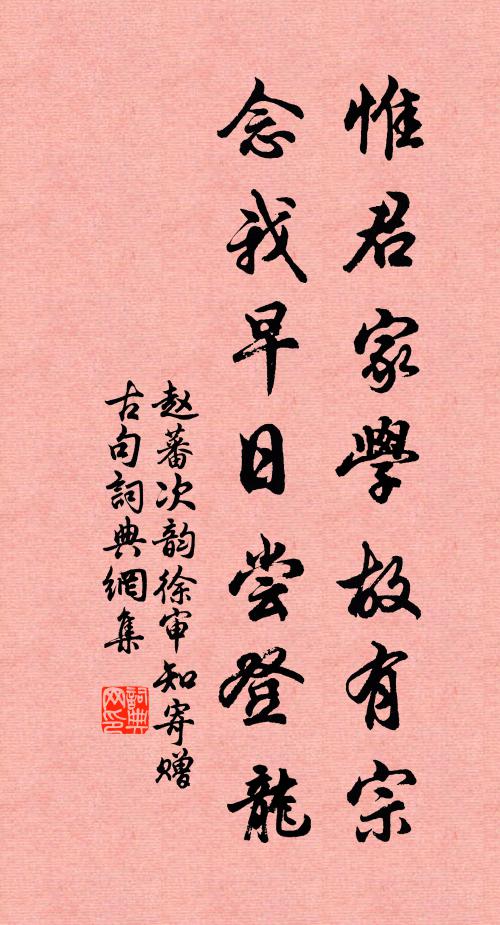 惟君家學故有宗
念我早日尝登龍
赵蕃次韵徐审知寄赠
古句詞典網集
詞典網印